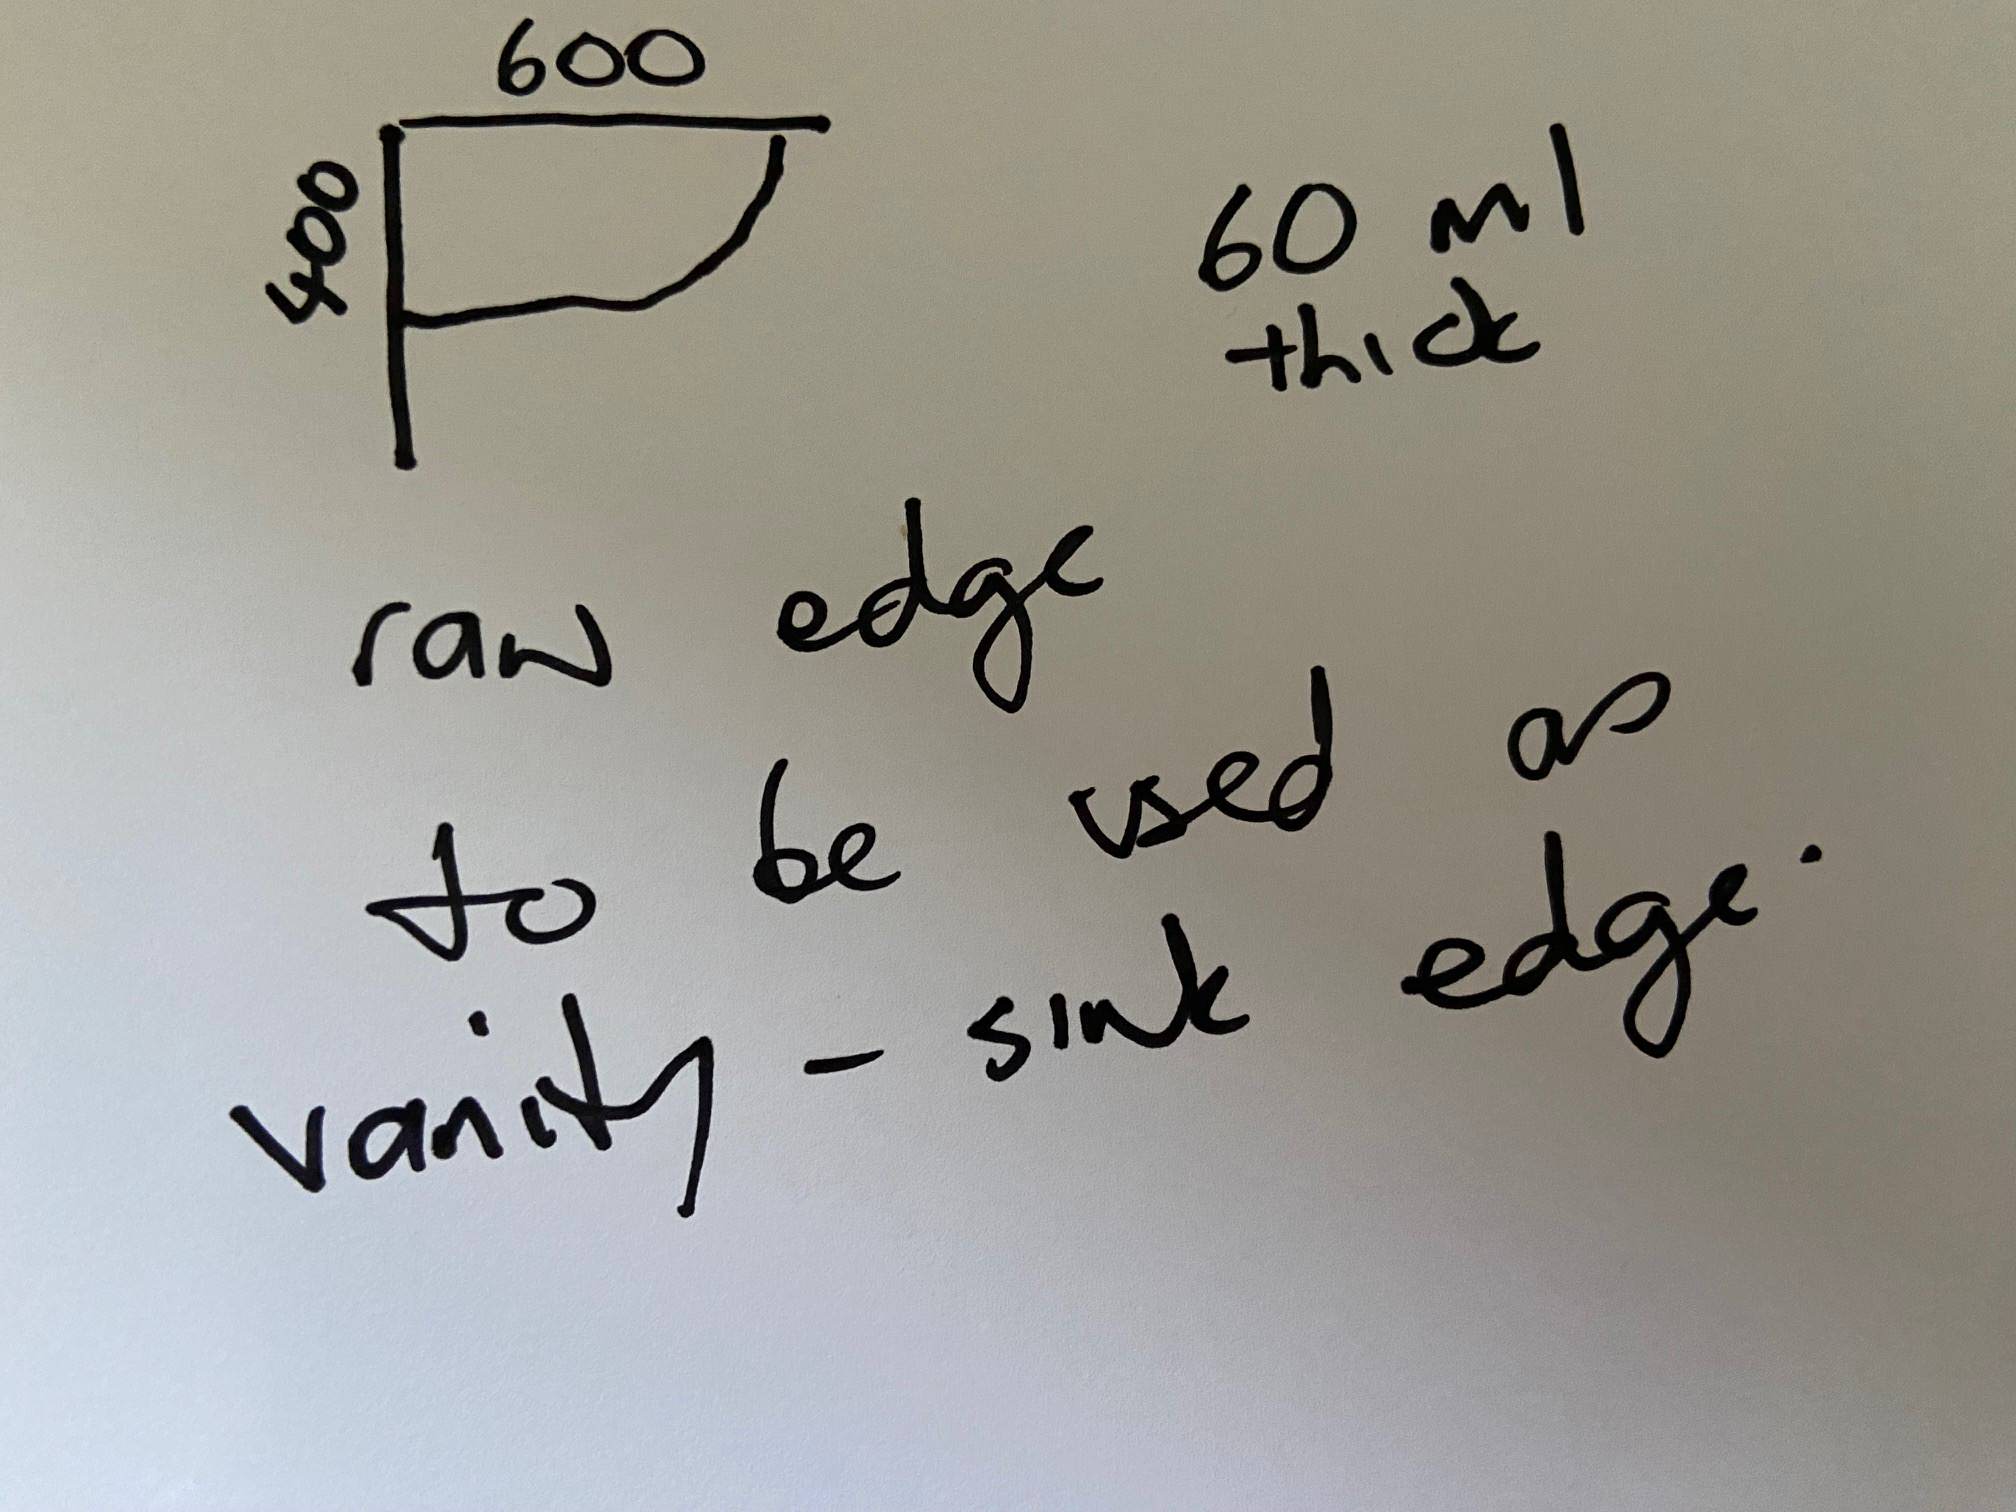 600
400
60 ml
thick
raw edge
to be used as
vanity - sink edge.